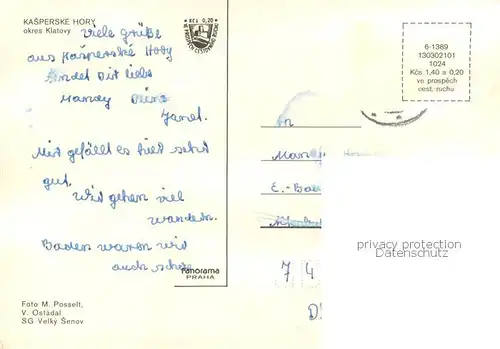 KAŠPERSKE HORY
okres Klatovy
Kčs 0,20
VE PROSPĚCH CESTOVNÍHO RUCHU
Viele Grüße
aus Kašperské Hory
sendet Dir liebe
Mandy Deine
Janet.
Mir gefällt es hier sehr
gut.
Wir gehen viel
wandern.
Baden waren wir
auch schon
panorama
PRAHA
Foto M. Posselt,
V. Ostádal
SG Velký Šenov
6-1389
130302101
1024
Kčs 1,40 a 0,20
ve prospěch
cest. ruchu
An
E.-
7 4
D
privacy protection
Datenschutz